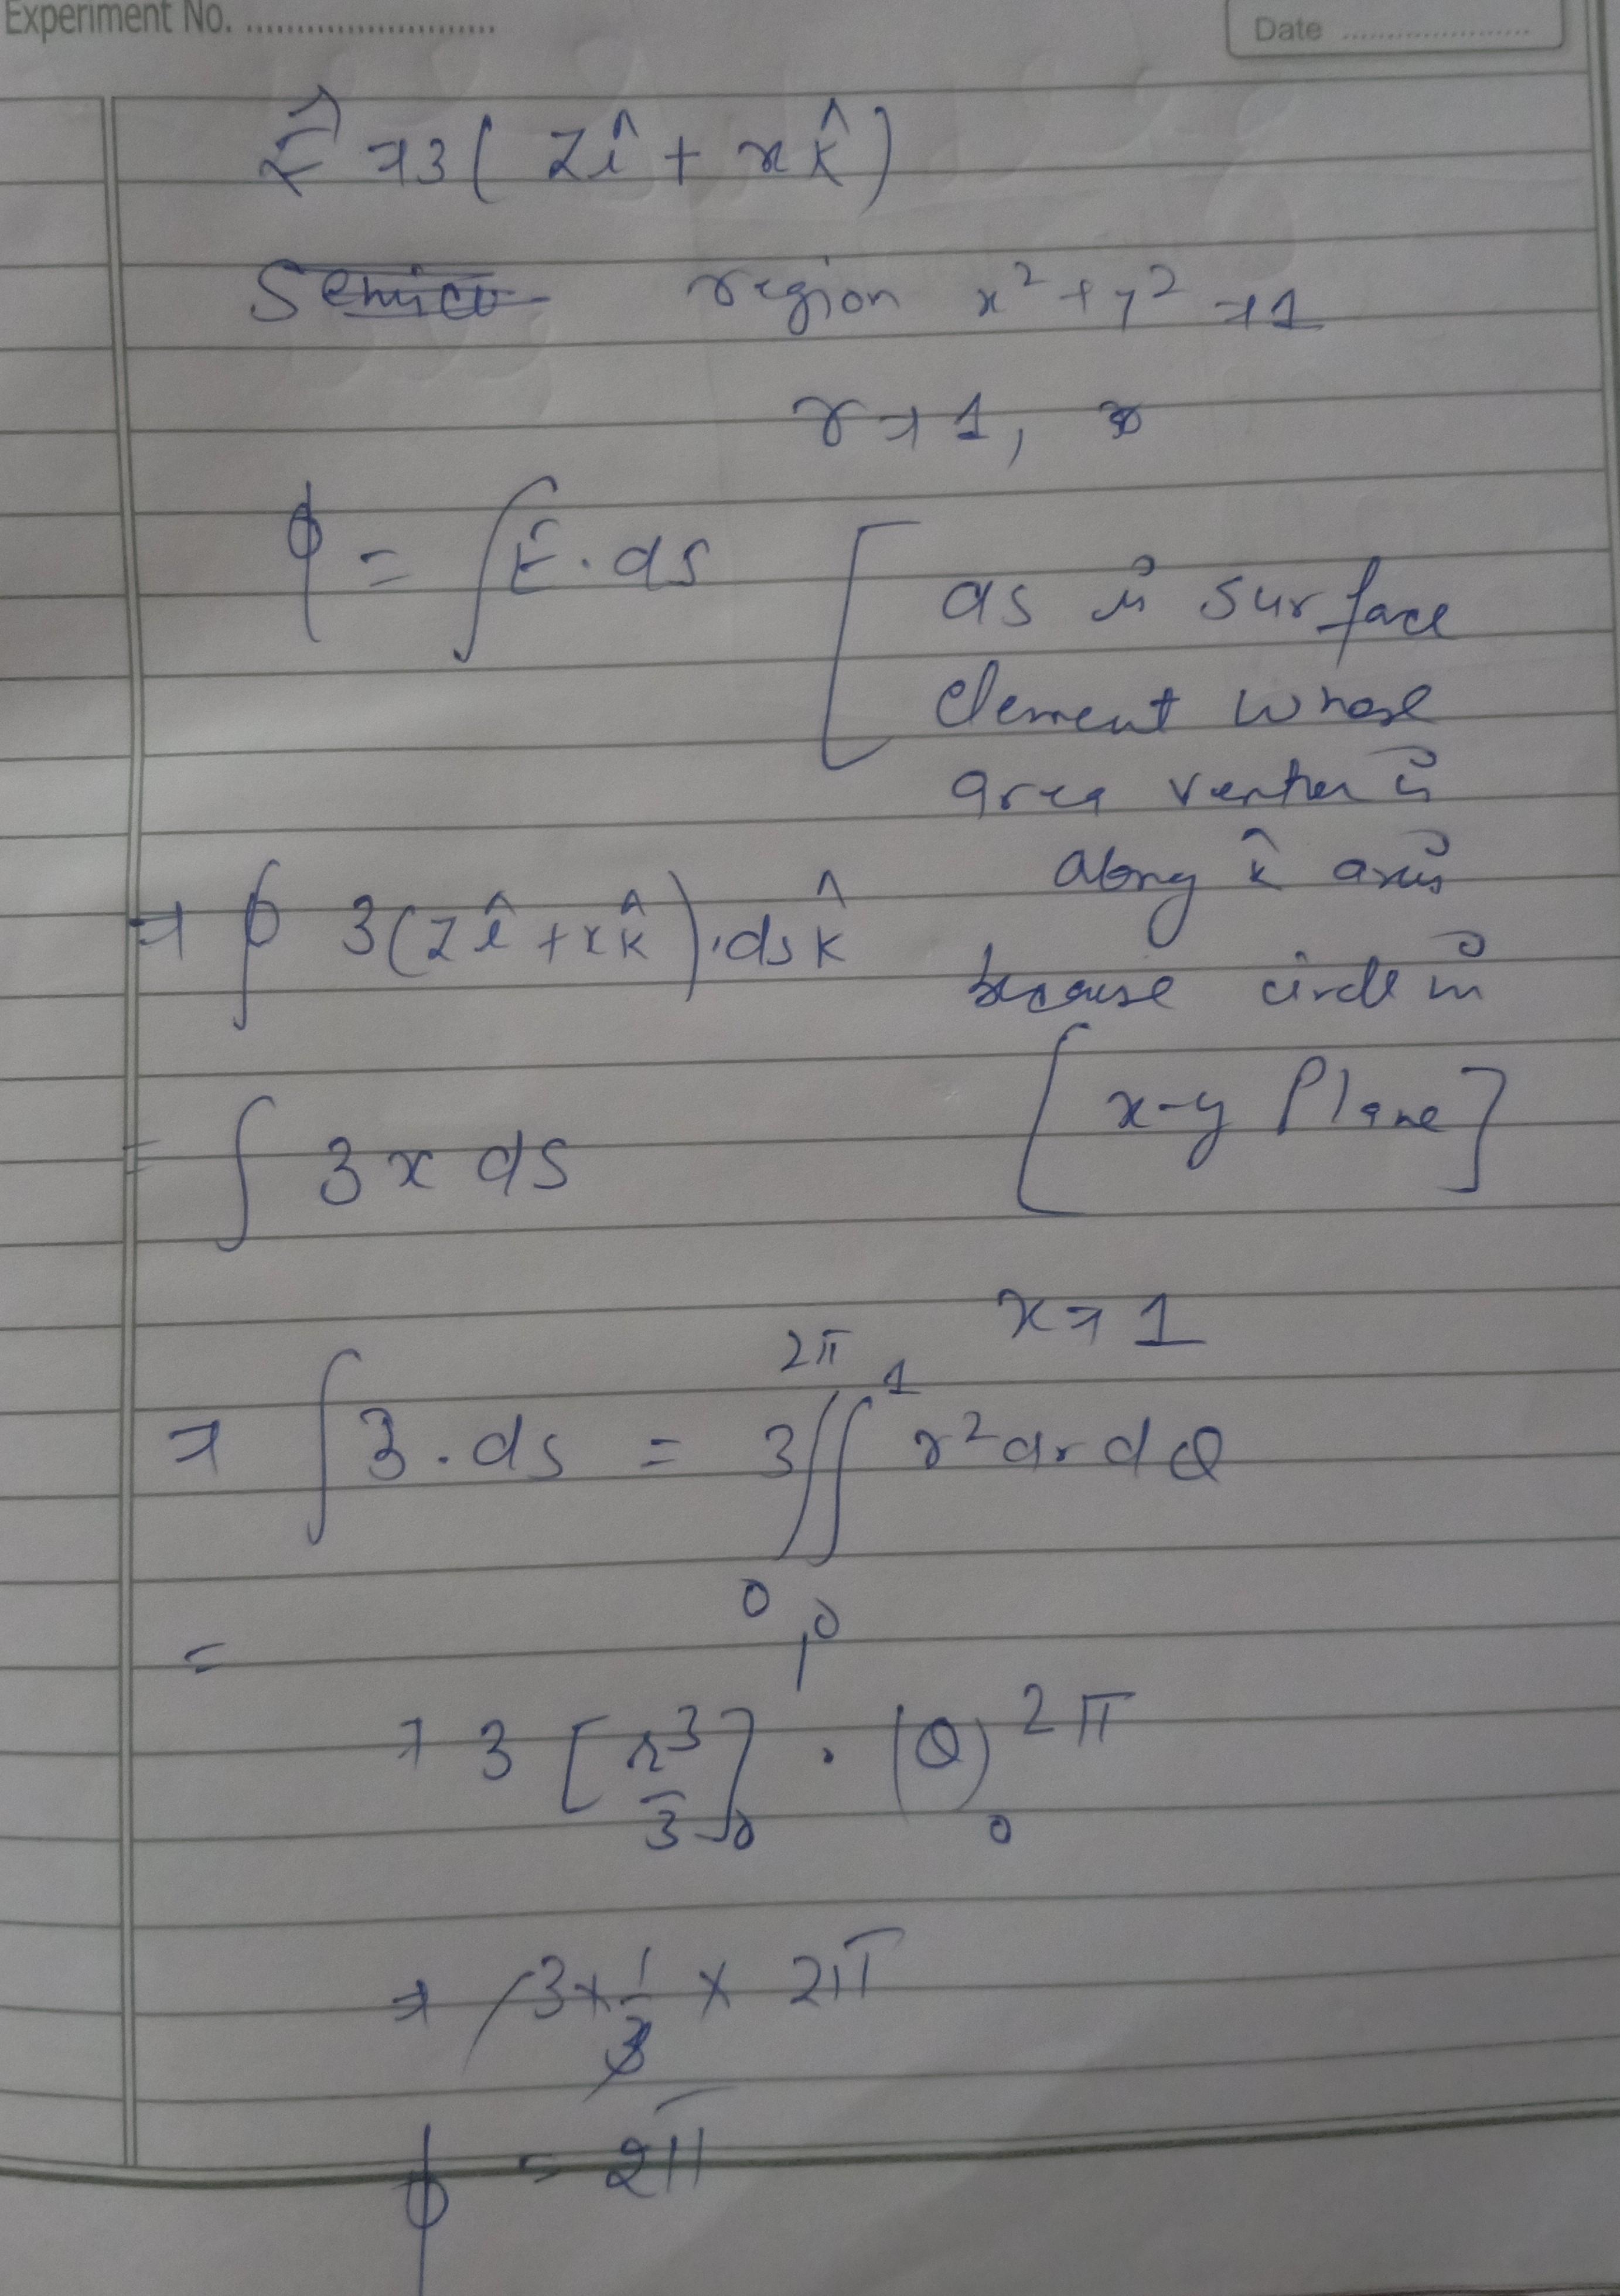 Experiment No. ........................
Date ....................
E⃗ → 3 ( z î + x k̂ )
region x² + y² → 1
r → 1,
ϕ = ∫ E⃗ . ds
[ ds is surface
element whose
area vector is
along k̂ axis
because circle in
[ x-y Plane ]
→ ∮ 3 ( z î + x k̂ ) . ds k̂
= ∫ 3 x ds
x → 1
→ ∫ 3 . ds = 3 ∫₀^2π ∫₀^1 r² dr dθ
=
→ 3 [ r³/3 ]₀ . ( θ )₀^2π
→ 3 × 1/3 × 2π
ϕ = 2π